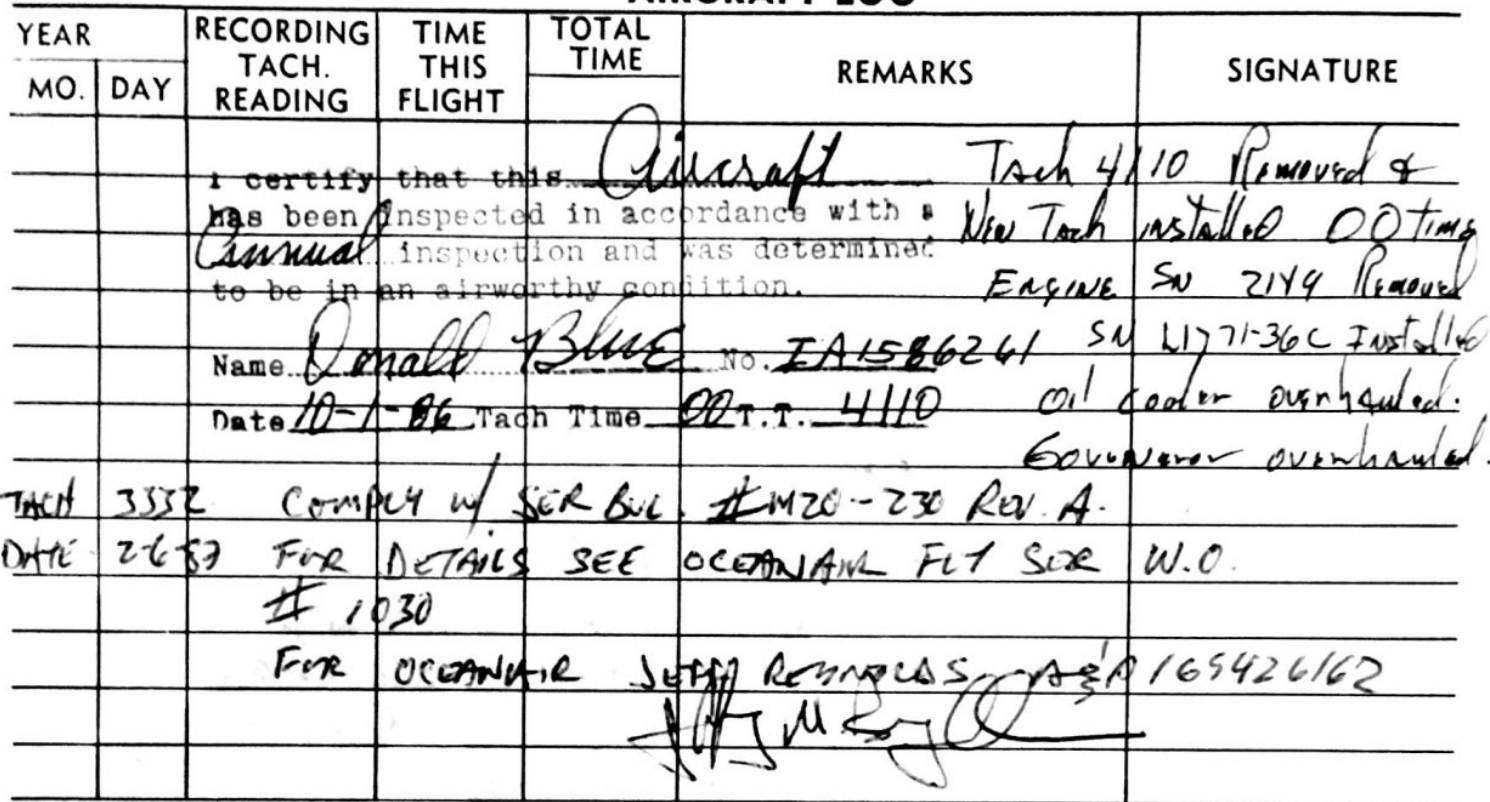 AIRCRAFT LOG
YEAR
MO. DAY
RECORDING TACH. READING
TIME THIS FLIGHT
TOTAL TIME
REMARKS
SIGNATURE
I certify that this Aircraft
has been inspected in accordance with a
Annual inspection and was determined
to be in an airworthy condition.
Name Donald Blue No. IA1586261
Date 10-1-86 Tach Time 00 T.T. 4110
Tach 4110 Removed &
New Tach installed 00 time
ENGINE SN 2149 Removed
SN L1771-36C Installed
Oil cooler overhauled.
Governor overhauled.
TACH 3332 COMPLY W/ SER BUL. #M20-230 REV. A.
DATE 2-6-87 FOR DETAILS SEE OCEANAIR FLT SER W.O.
# 1030
FOR OCEANAIR JEFF REYNOLDS A&P 169426162